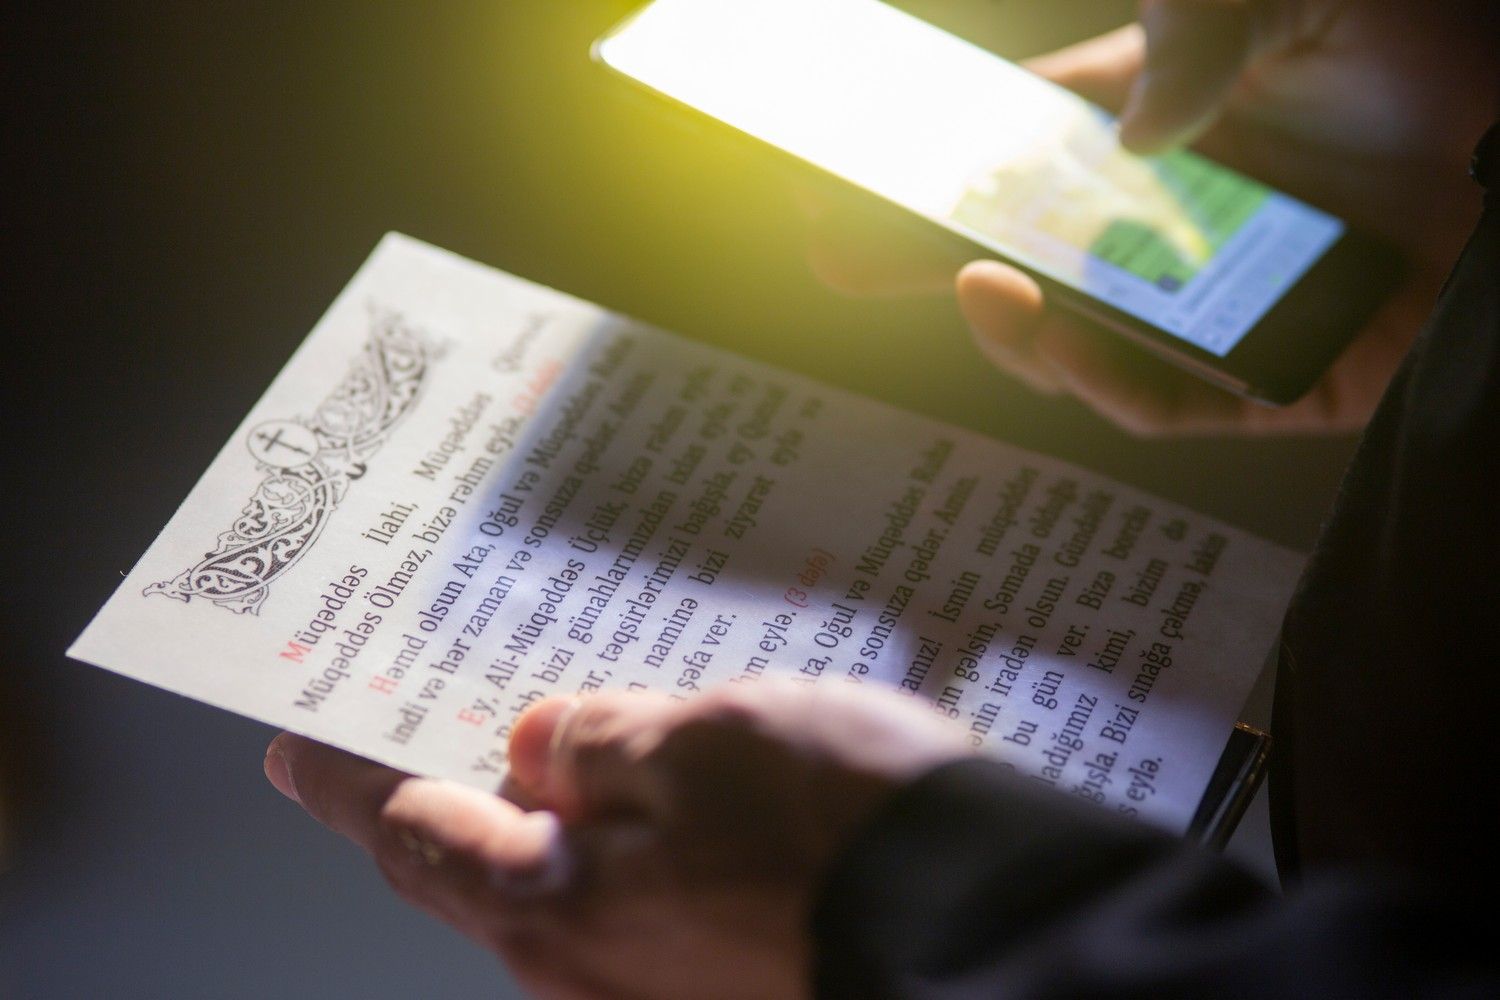 Müqəddəs İlahi, Müqəddəs Qüdrətli,
Müqəddəs Ölməz, bizə rəhm eylə. (3 dəfə)
Həmd olsun Ata, Oğul və Müqəddəs Ruha
indi və hər zaman və sonsuza qədər. Amin.
Ey, Ali-Müqəddəs Üçlük, bizə rəhm eylə.
Ya Rəbb bizi günahlarımızdan xilas eylə, ey
təqsirlərimizi bağışla, ey Qutsal
naminə bizi ziyarət eylə və
şəfa ver.
eylə. (3 dəfə)
Ata, Oğul və Müqəddəs Ruha
və sonsuza qədər. Amin.
İsmin müqəddəs
gəlsin, Səmada olduğu
iradən olsun. Gündəlik
bu gün ver. Bizə borclu
kimi, bizim də
Bizi sınağa çəkmə, lakin
eylə.